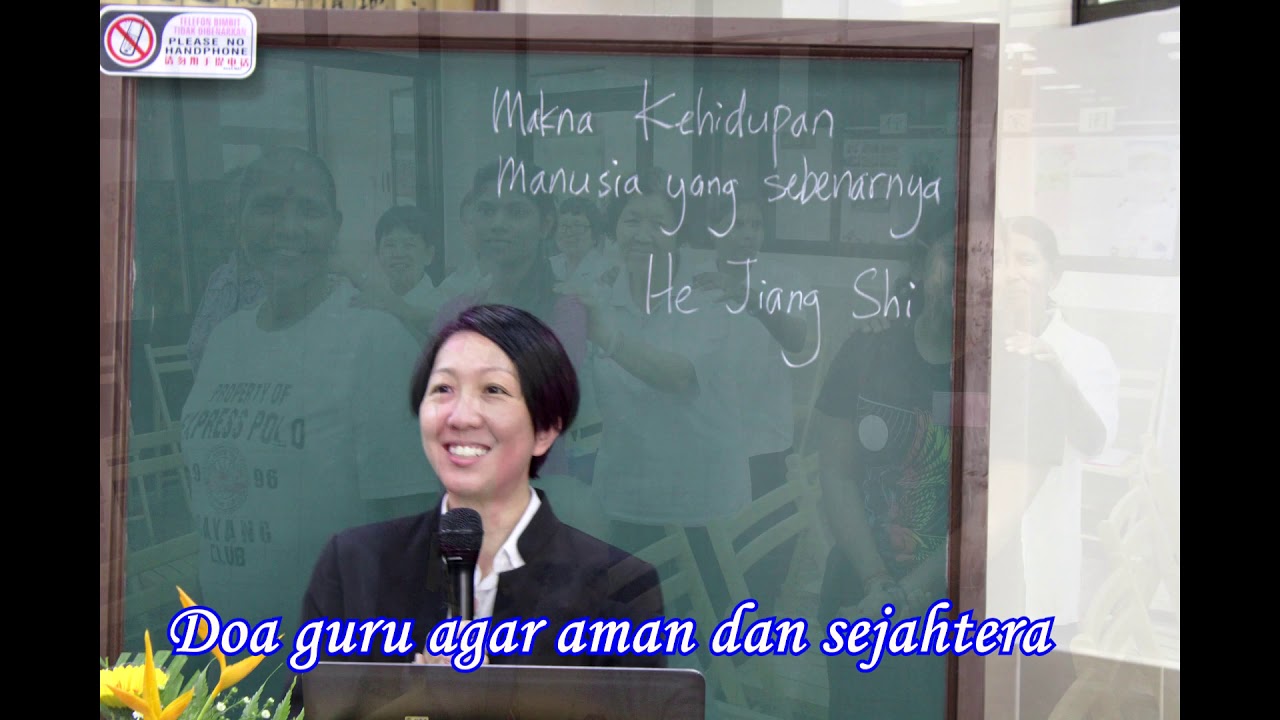 TELEFON BIMBIT
TIDAK DIBENARKAN
PLEASE NO
HANDPHONE
请勿用手提电话
Makna Kehidupan
Manusia yang sebenarnya
He Jiang Shi
PROPERTY OF
EXPRESS POLO
1996
CLUB
Doa guru agar aman dan sejahtera